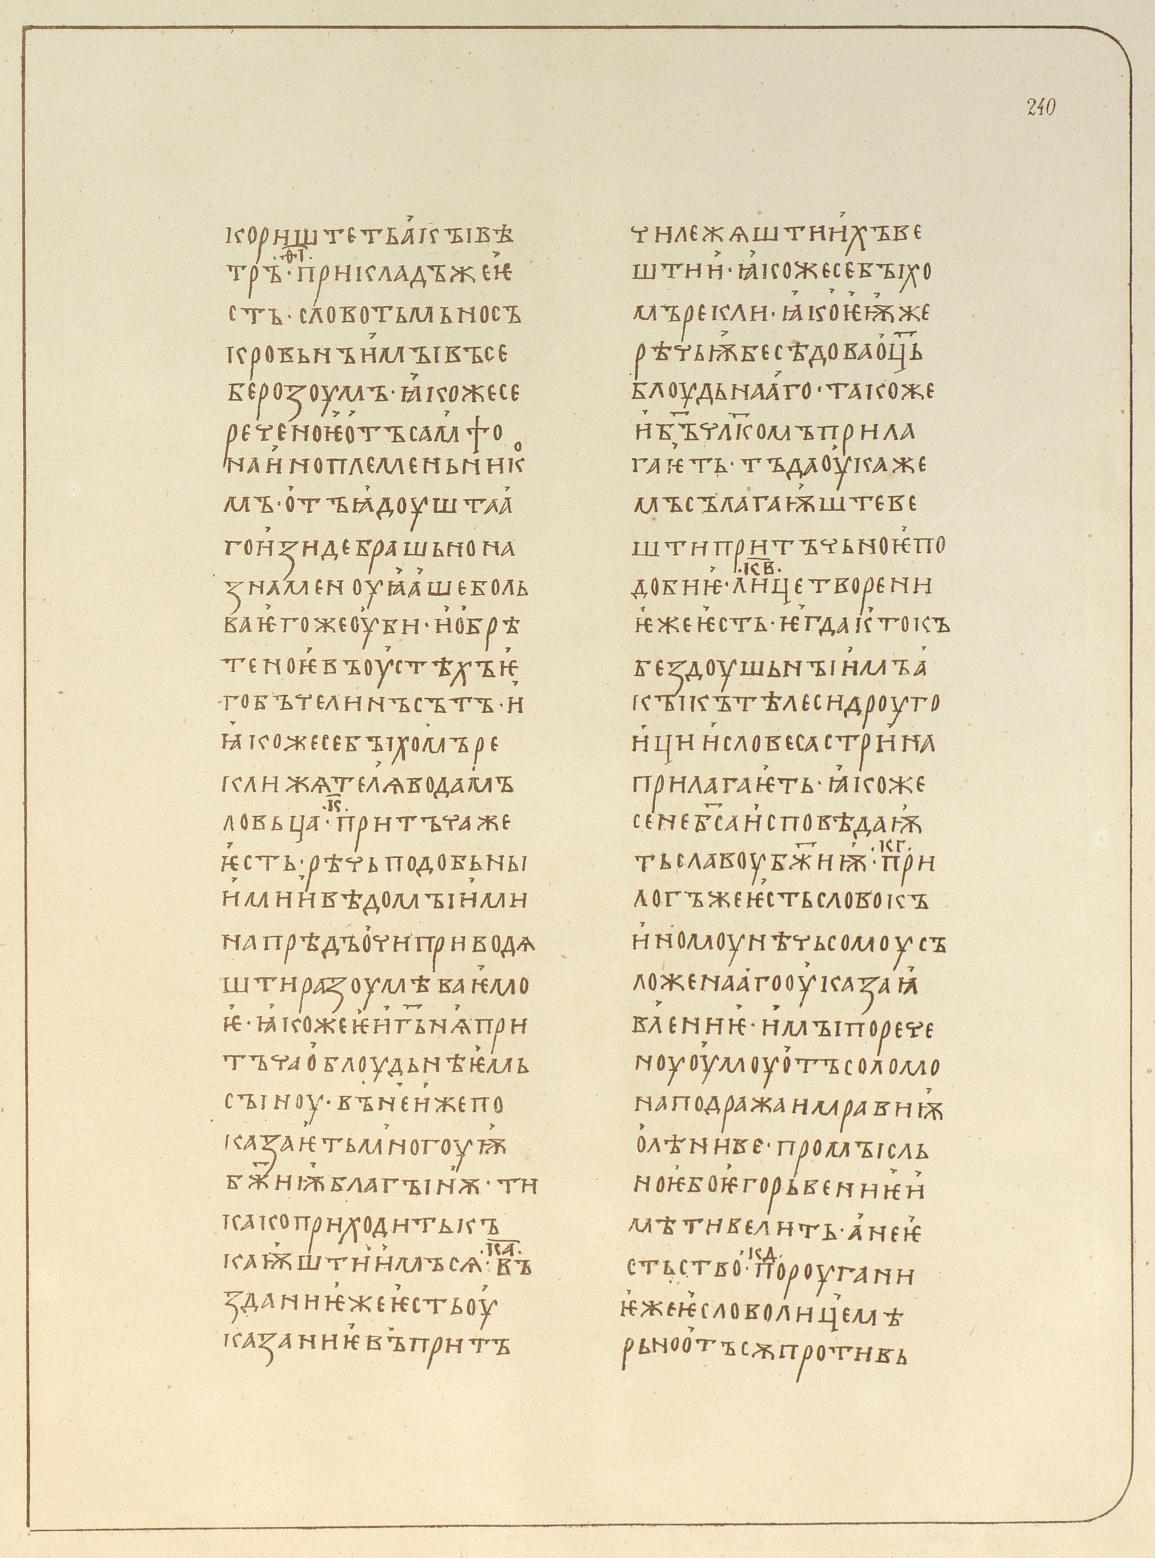 240
кориштеть акъівѣ
.ѳ҃і.
тръ· прикладъже ѥ
сть· словотьмьносъ
кровьнъимъівъсе
берозоумъ· ꙗкожесе
реченоѥотъсаммѳо
наиноплеменьнико
мъ· отъꙗдоуштаа
гоизидебрашьнона
знаменоуꙗашеболь
ваѥгожеоуби· иобрѣ
теноѥвъоустѣхъѥ
гобъчелинъсътъ· и
ꙗкожесебъіхомъре
клижѧтелѧводамъ
.к҃.
ловьца· притъчаже
ѥсть· рѣчьподобьны
имиивѣдомъіими
напрѣдъочиприводѧ
штиразоумѣваѥмо
ѥ· ꙗкожеѥиг҃ьнѧпри
тъчаоблоудьнѣѥмь
съіноу· вънеижепо
казаѥтьмногоуѭ
бж҃иѭблагъінѫ· ти
какоприходитькъ
.к҃а.
каѭштиимъсѧ· въ
зданиѥжеѥстьоу
казаниѥвъпритъ
чилежѧштиихъве
штии· ꙗкожесебъіхо
мърекли· ꙗкоѥѭже
рѣчьѭбесѣдоваоц҃ь
блоудьнааго· такоже
иб҃ъчл҃комъприла
гаѥть· тъдаоукаже
мъсълагаѭштеве
штипритъчьноѥпо
.к҃в.
добиѥ· лицетворени
ѥжеѥсть· ѥгдактокъ
бездоушьнъіимъа
къікътѣлесидроуго
ициисловесастрина
прилагаѥть· ꙗкоже
сенеб҃саисповѣдаѭ
.к҃г.
тьславоубж҃иѭ· при
логъжеѥстьслововокъ
иномоунѣчьсомоусъ
ложенаагооуказаꙗ
влениѥ· имъіпорече
ноуоумоуотъсоломо
наподражаимравиѭ
олѣниве· промъісль
ноѥбоѥгорьвениѥи
мѣтивелить· анеѥ
.к҃д.
стьство· пороугани
ѥжеѥсловолицемѣ
рьноотъсѫпротивь